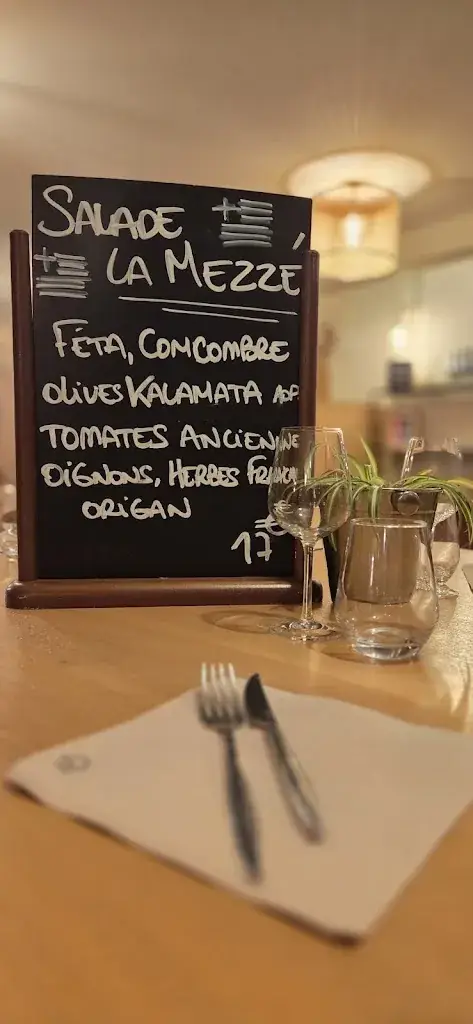 SALADE
LA MEZZÉ
FÉTA, CONCOMBRE
OLIVES KALAMATA AOP
TOMATES ANCIENNE
OIGNONS, HERBES
ORIGAN
17€